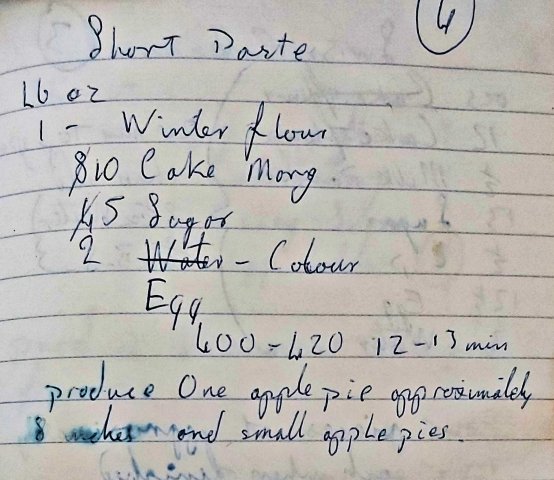 4
Short Paste
Lb oz
1 - Winter flour
10 Cake Marg.
5 Sugar
2 Water - Colour
Egg
400 - 420 12-13 min
produce One apple pie approximately
8 inches and small apple pies.